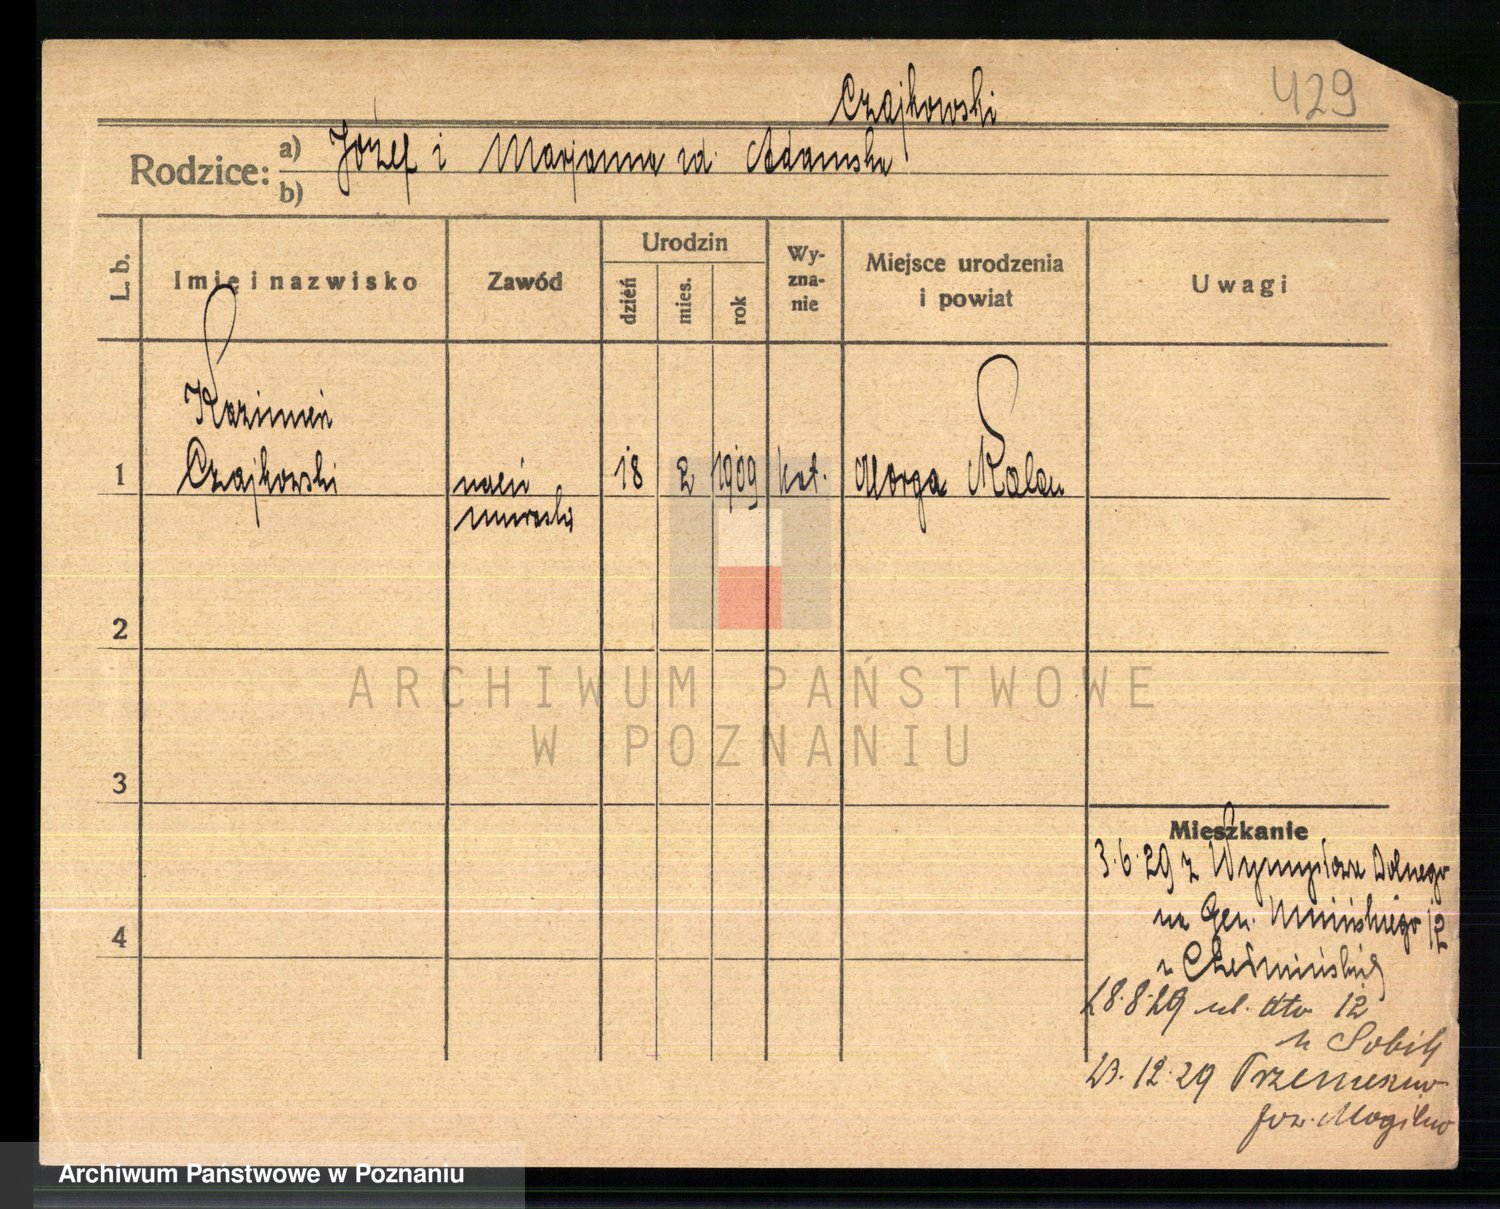 429
Czajkowski
Rodzice: a) Józef i Marjanna zd. Adamska
b)
L. b.
Imię i nazwisko
Zawód
Urodzin
dzień
mies.
rok
Wy-
zna-
nie
Miejsce urodzenia
i powiat
Uwagi
Kazimierz
1 Czajkowski 18 2 1909 kat. Morga
2
3
4
Mieszkanie
3.6.29 z Wymysłowa Dolnego
na Gen. 12
28.8.29 ul. dto 12
23.12.29 Trzemeszno
pow. Mogilno
ARCHIWUM PAŃSTWOWE
W POZNANIU
Archiwum Państwowe w Poznaniu